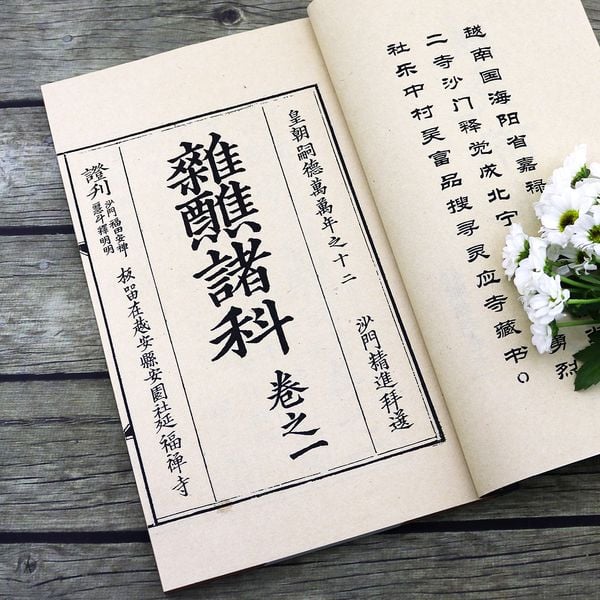 越南国海阳省嘉禄
二寺沙门释觉成北宁
勇烈
社乐中村吴富品搜寻灵应寺藏书。
皇朝嗣德萬萬年之十二
沙門精進拜選
雜醮諸科
卷之一
證刊
沙門福田安禪
釋明明
板留在
安縣安園社延福禪寺